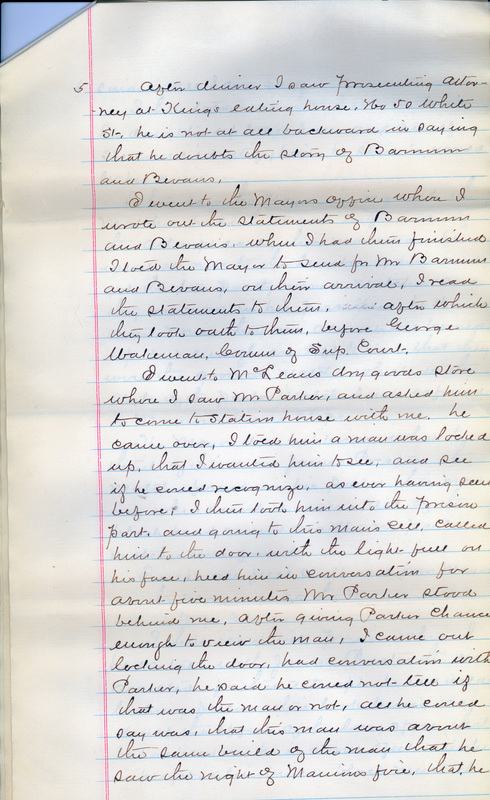 5 After dinner I saw Prosecuting Attor-
-ney at Kings eating house, No 50 White
St, he is not at all backward in saying
that he doubts the story of Barnum
and Bevans,
I went to the Mayors Office where I
wrote out the statements of Barnum
and Bevans. when I had them finished
I told the Mayor to send for Mr Barnum
and Bevans, on their arrival, I read
the statements to them, after which
they took oath to them, before George
Wakeman, Comm of Sup. Court.
I went to McLeans dry goods store
where I saw Mr Parker, and asked him
to come to Station house with me. he
came over, I told him a man was locked
up, that I wanted him to see, and see
if he could recognize, as ever having seen
before, I then took him into the prison
part. and going to this mans cell, called
him to the door. with the light full on
his face, held him in conversation for
about five minutes Mr Parker stood
behind me, after giving Parker chance
enough to view the man, I came out
locking the door, had conversation with
Parker, he said he could not tell if
that was the man or not, all he could
say was, that this man was about
the same build of the man that he
saw the night of fire, that, he